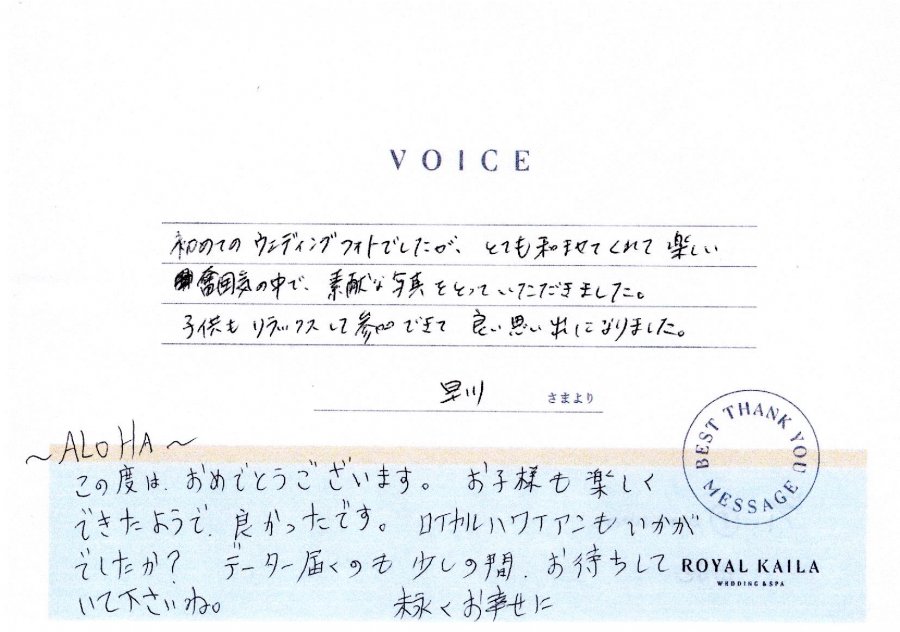 VOICE
初めてのウェディングフォトでしたが、とても和ませてくれて楽しい
雰囲気の中で、素敵な写真をとっていただきました。
子供もリラックスして参加できて 良い思い出になりました。
早川 さまより
BEST THANK YOU MESSAGE
~ALOHA~
この度は、おめでとうございます。 お子様も楽しく
できたようで、良かったです。 ロイヤルハワイアンもいかが
でしたか? データー届くのも少しの間、お待ちして
いて下さいね。 末永くお幸せに
ROYAL KAILA
WEDDING & SPA